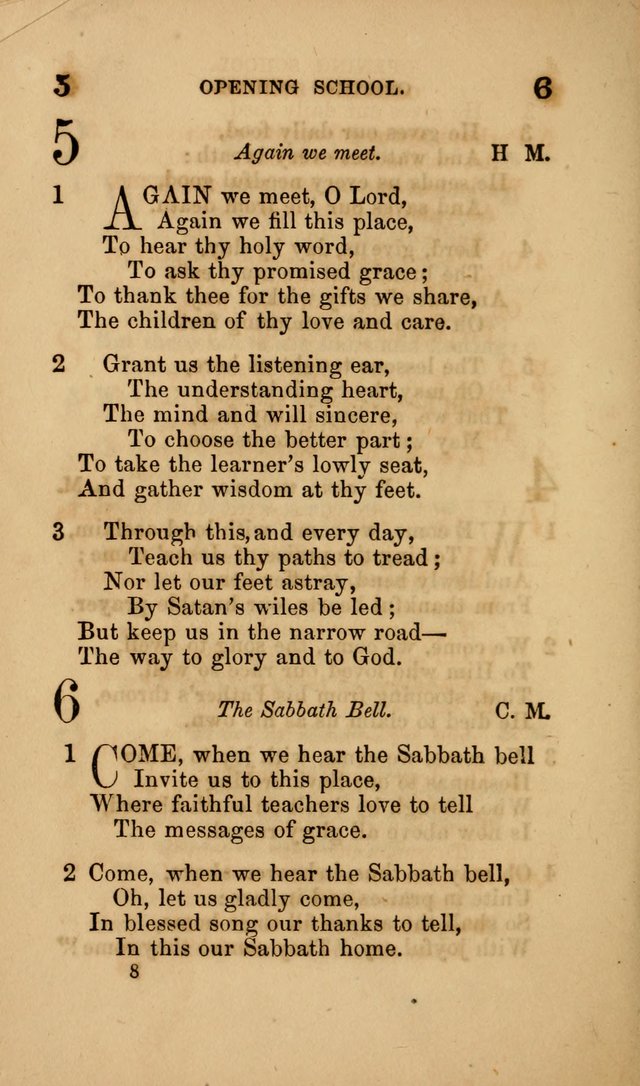 5 OPENING SCHOOL. 6
5 Again we meet. H M.
1 AGAIN we meet, O Lord,
Again we fill this place,
To hear thy holy word,
To ask thy promised grace;
To thank thee for the gifts we share,
The children of thy love and care.
2 Grant us the listening ear,
The understanding heart,
The mind and will sincere,
To choose the better part;
To take the learner's lowly seat,
And gather wisdom at thy feet.
3 Through this, and every day,
Teach us thy paths to tread;
Nor let our feet astray,
By Satan's wiles be led;
But keep us in the narrow road—
The way to glory and to God.
6 The Sabbath Bell. C. M.
1 COME, when we hear the Sabbath bell
Invite us to this place,
Where faithful teachers love to tell
The messages of grace.
2 Come, when we hear the Sabbath bell,
Oh, let us gladly come,
In blessed song our thanks to tell,
In this our Sabbath home.
8